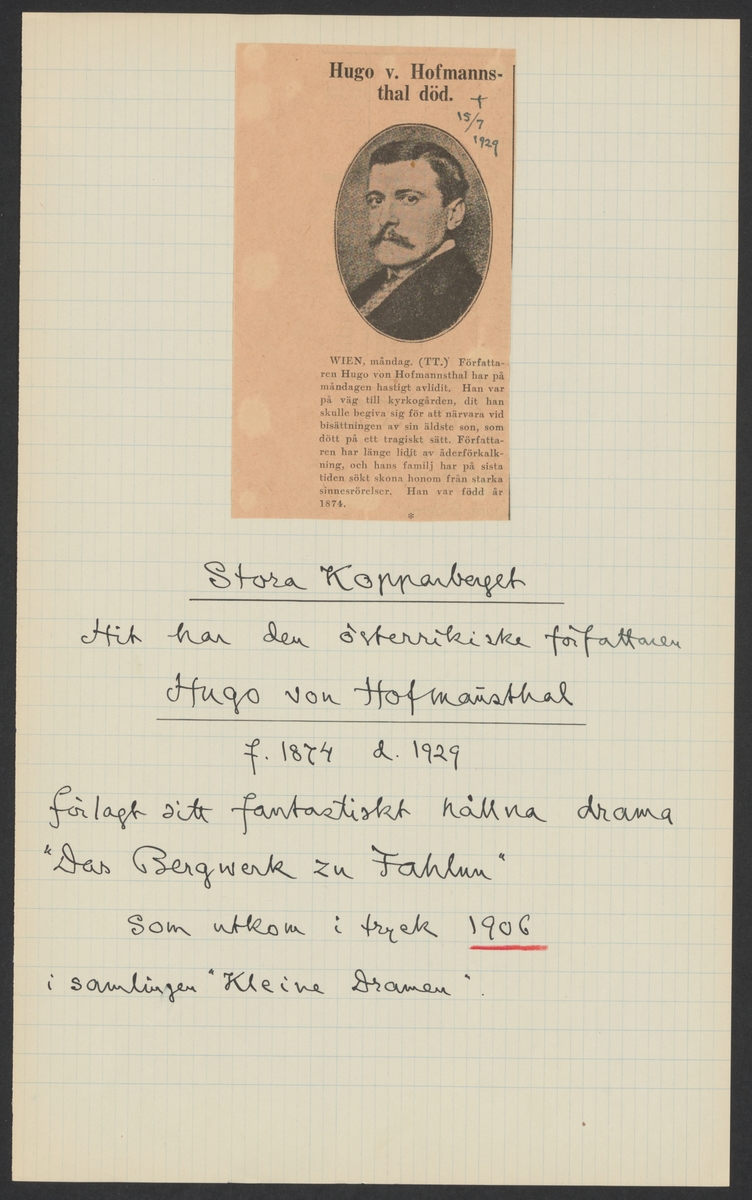 Hugo v. Hofmanns-
thal död.
+
15/7
1929
WIEN, måndag. (TT.) Författa-
ren Hugo von Hofmannsthal har på
måndagen hastigt avlidit. Han var
på väg till kyrkogården, dit han
skulle begiva sig för att närvara vid
bisättningen av sin äldste son, som
dött på ett tragiskt sätt. Författa-
ren har länge lidit av åderförkalk-
ning, och hans familj har på sista
tiden sökt skona honom från starka
sinnesrörelser. Han var född år
1874.
*
Stora Kopparberget
Hit har den österrikiske författaren
Hugo von Hofman̄sthal
f. 1874 d. 1929
förlagt sitt fantastiskt hållna drama
"Das Bergwerk zu Fahlun"
som utkom i tryck 1906
i samlingen "Kleine Dramen".